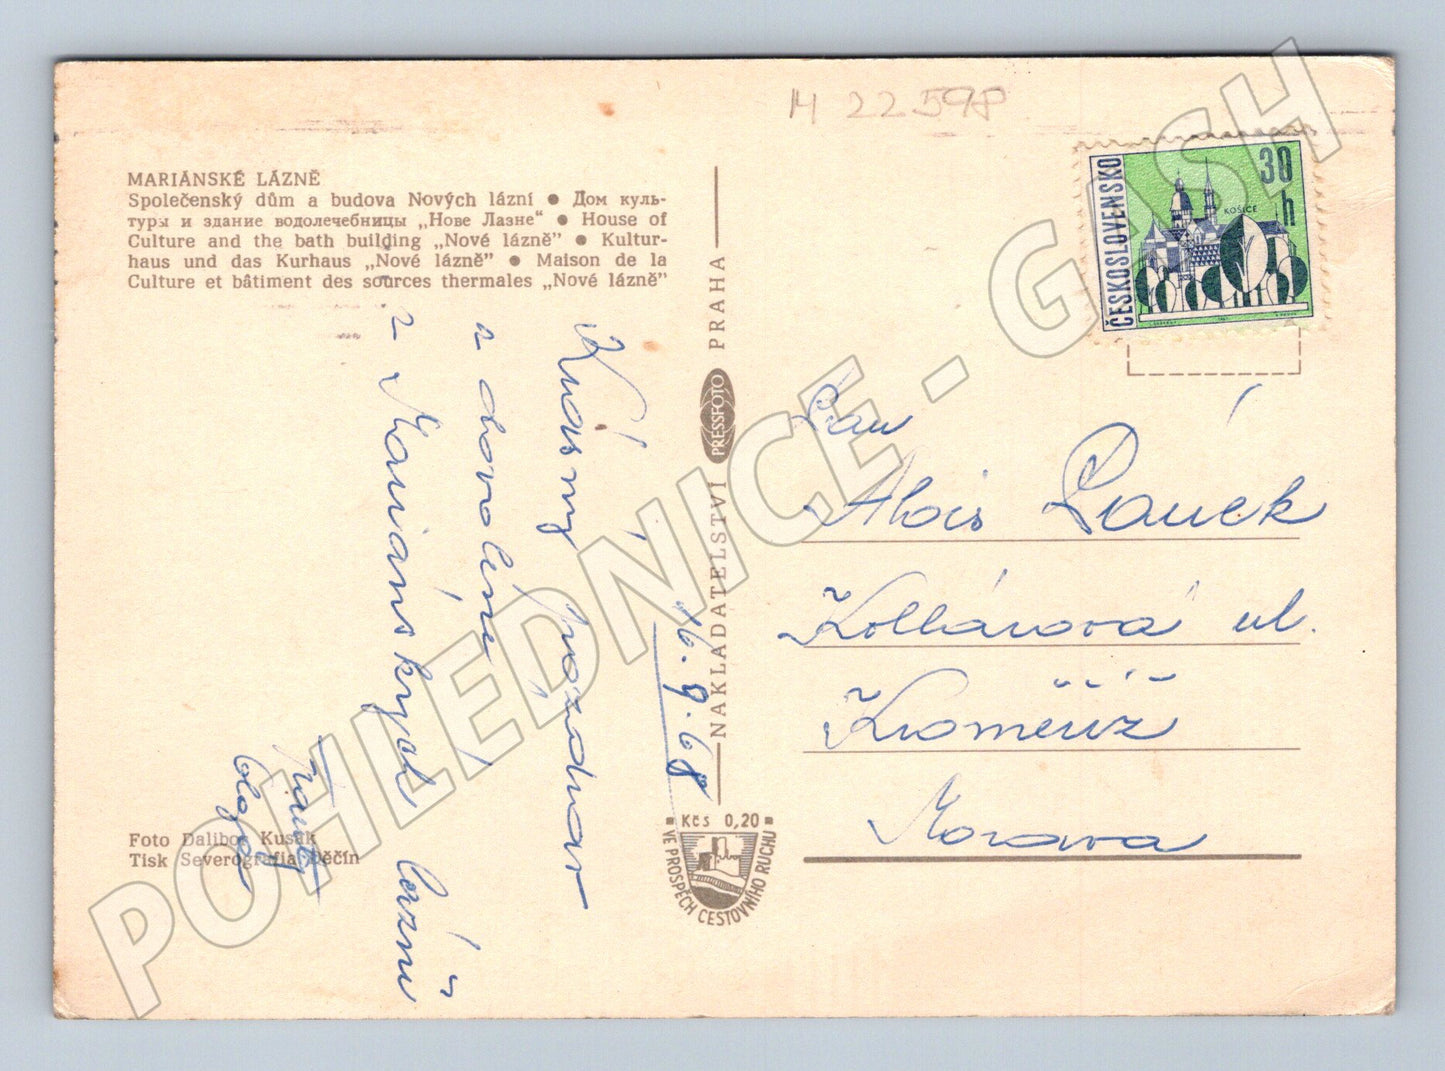 M 22598
MARIÁNSKÉ LÁZNĚ
Společenský dům a budova Nových lázní ● Дом куль-
туры и здание водолечебницы „Нове Лазне“ ● House of
Culture and the bath building „Nové lázně” ● Kultur-
haus und das Kurhaus „Nové lázně” ● Maison de la
Culture et bâtiment des sources thermales „Nové lázně”
16.9.68
Krásný pozdrav
z dovolené
z Mariánských Lázní
Olga
Foto Dalibor Kusák
Tisk Severografia Děčín
NAKLADATELSTVÍ PRESSFOTO PRAHA
Kčs 0,20
VE PROSPĚCH CESTOVNÍHO RUCHU
ČESKOSLOVENSKO
30 h
KOŠICE
Pan
Alois
Kollárová ul.
Kroměříž
Morava
POHLEDNICE - GASH